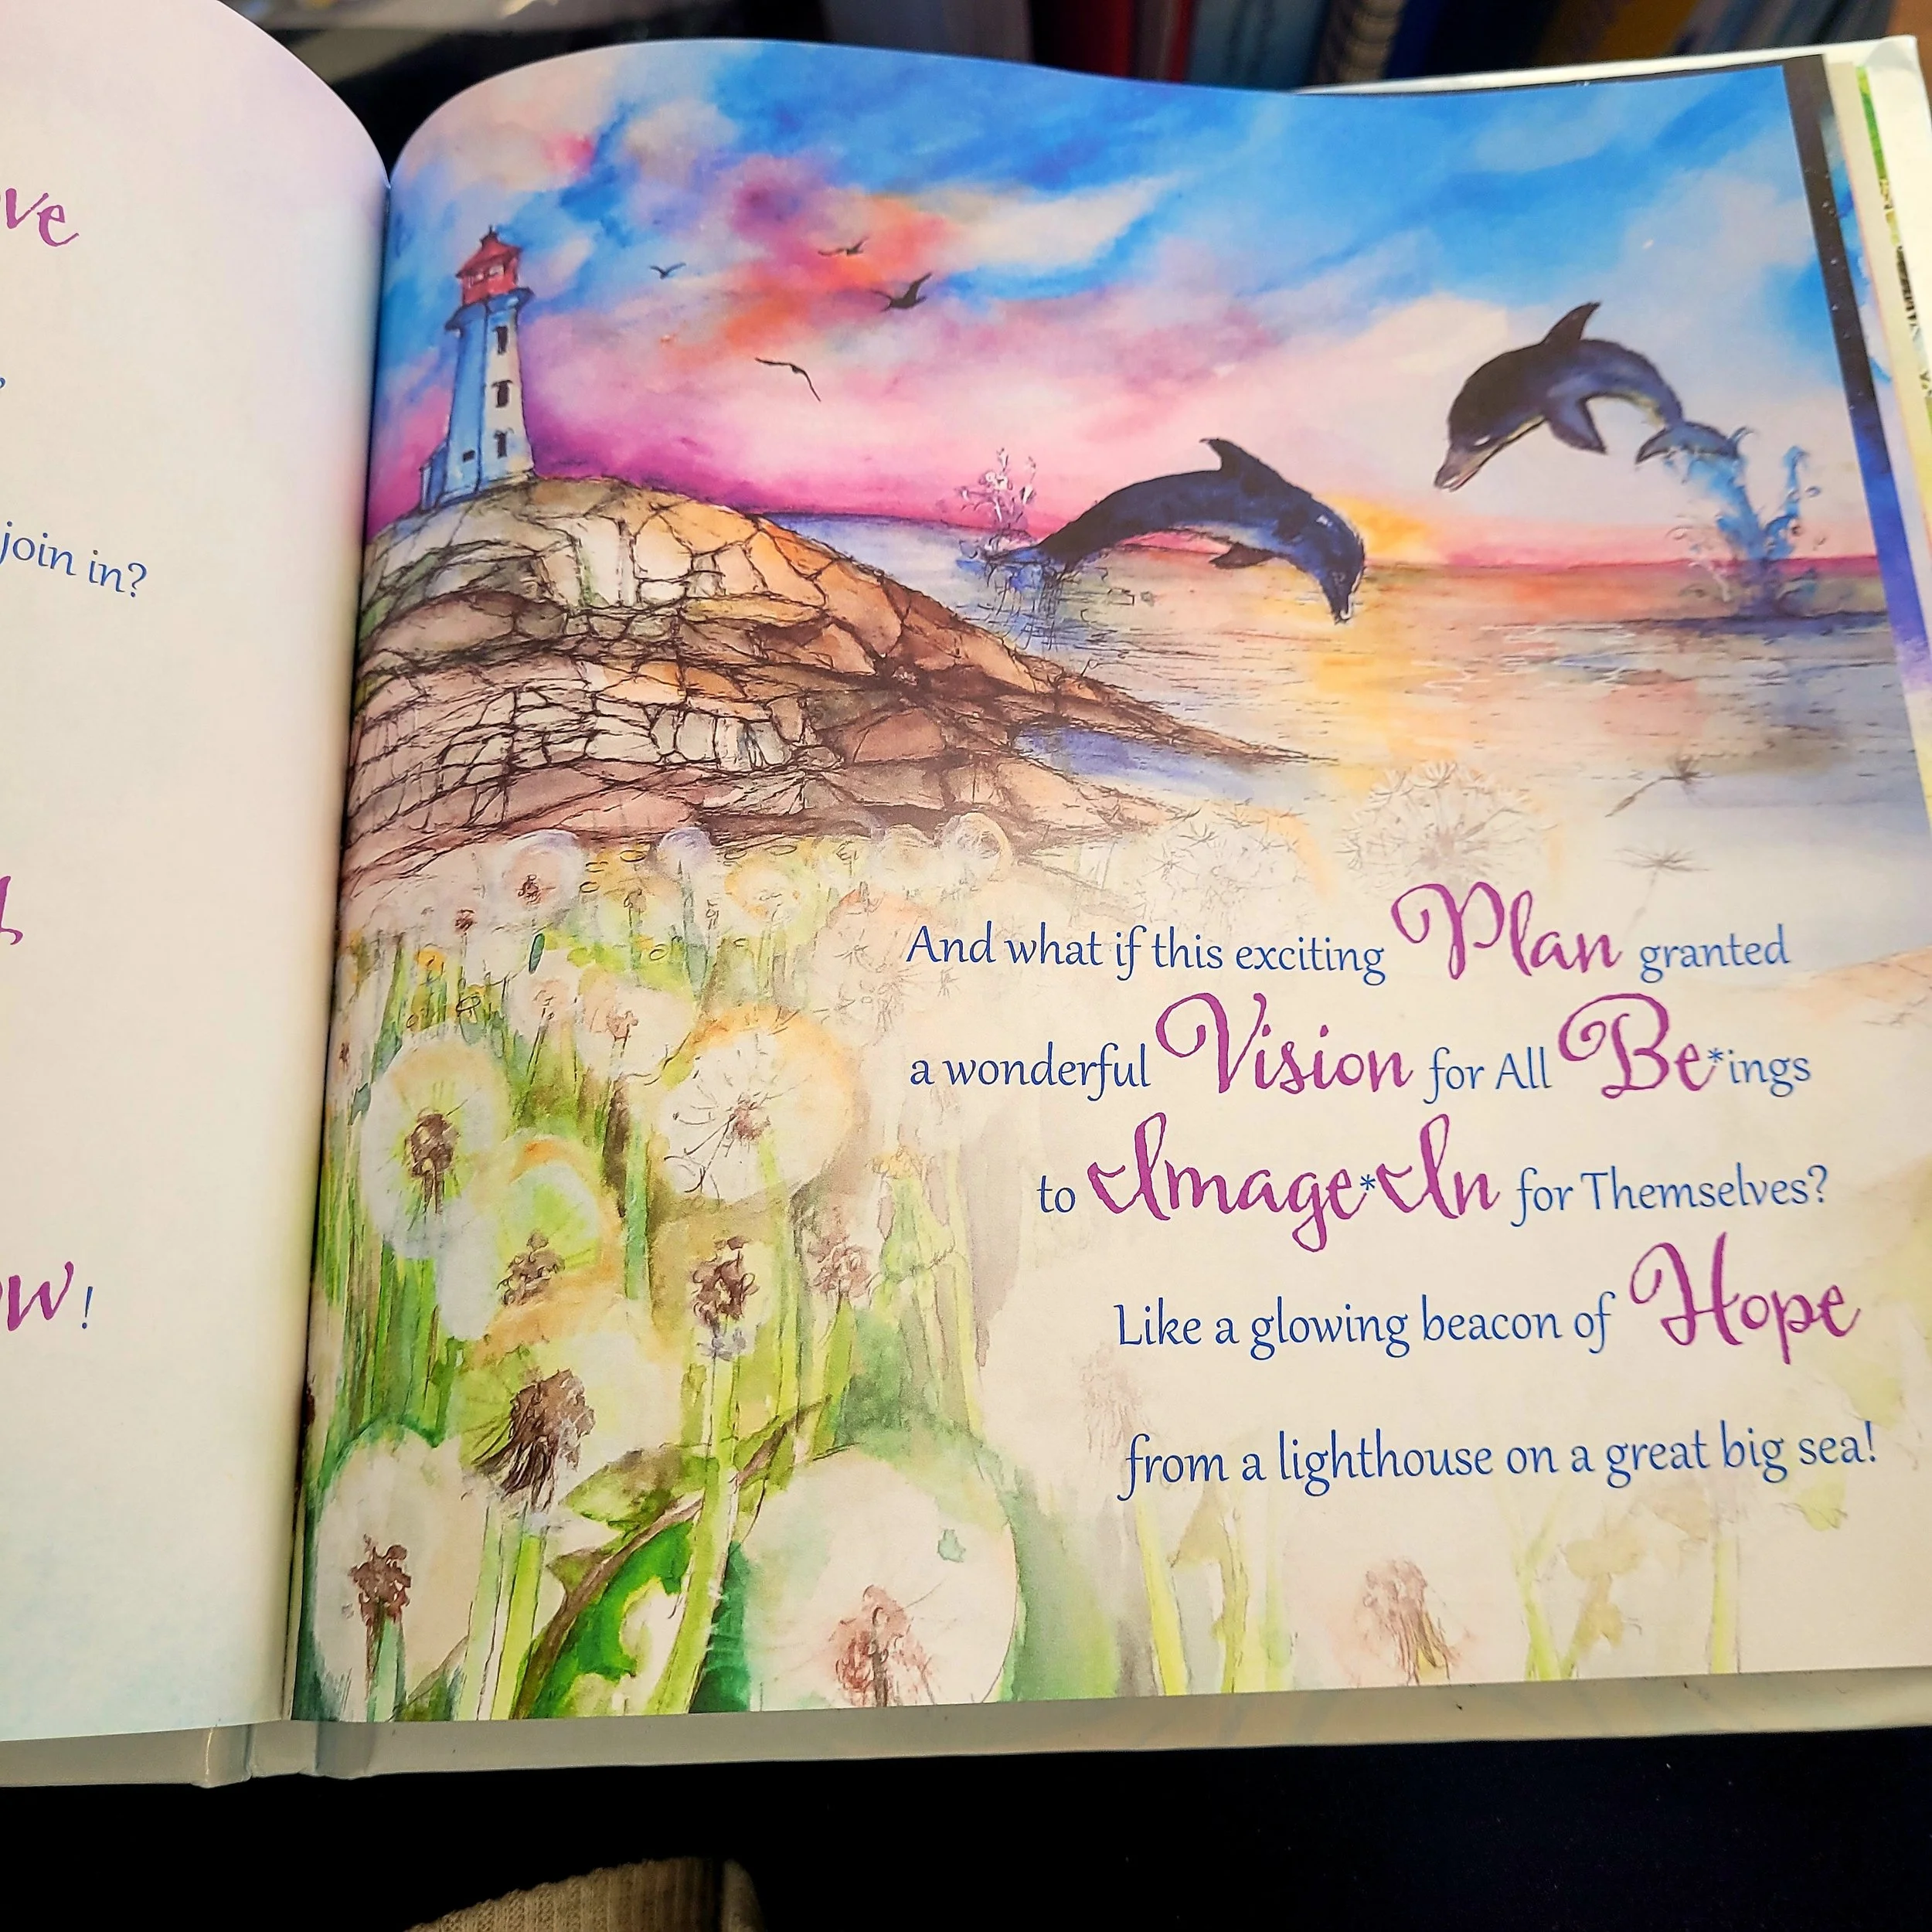 join in?
And what if this exciting Plan granted
a wonderful Vision for All Be*ings
to Image*In for Themselves?
Like a glowing beacon of Hope
from a lighthouse on a great big sea!